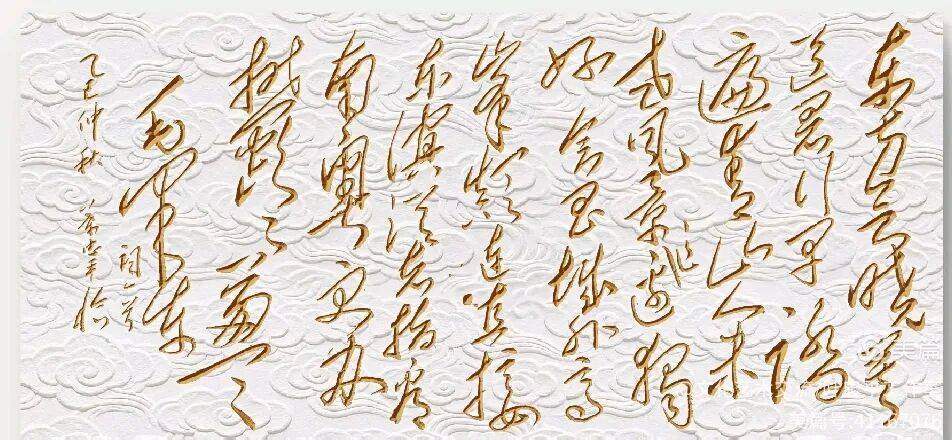 东方欲晓莫
道君行早踏
遍青山人未
老风景这边独
好会昌城外高
峰颠连直接
东溟战士指看
南粤更加
郁郁葱葱
毛泽东
词一首
乙巳仲秋
美篇
美篇号:4116707